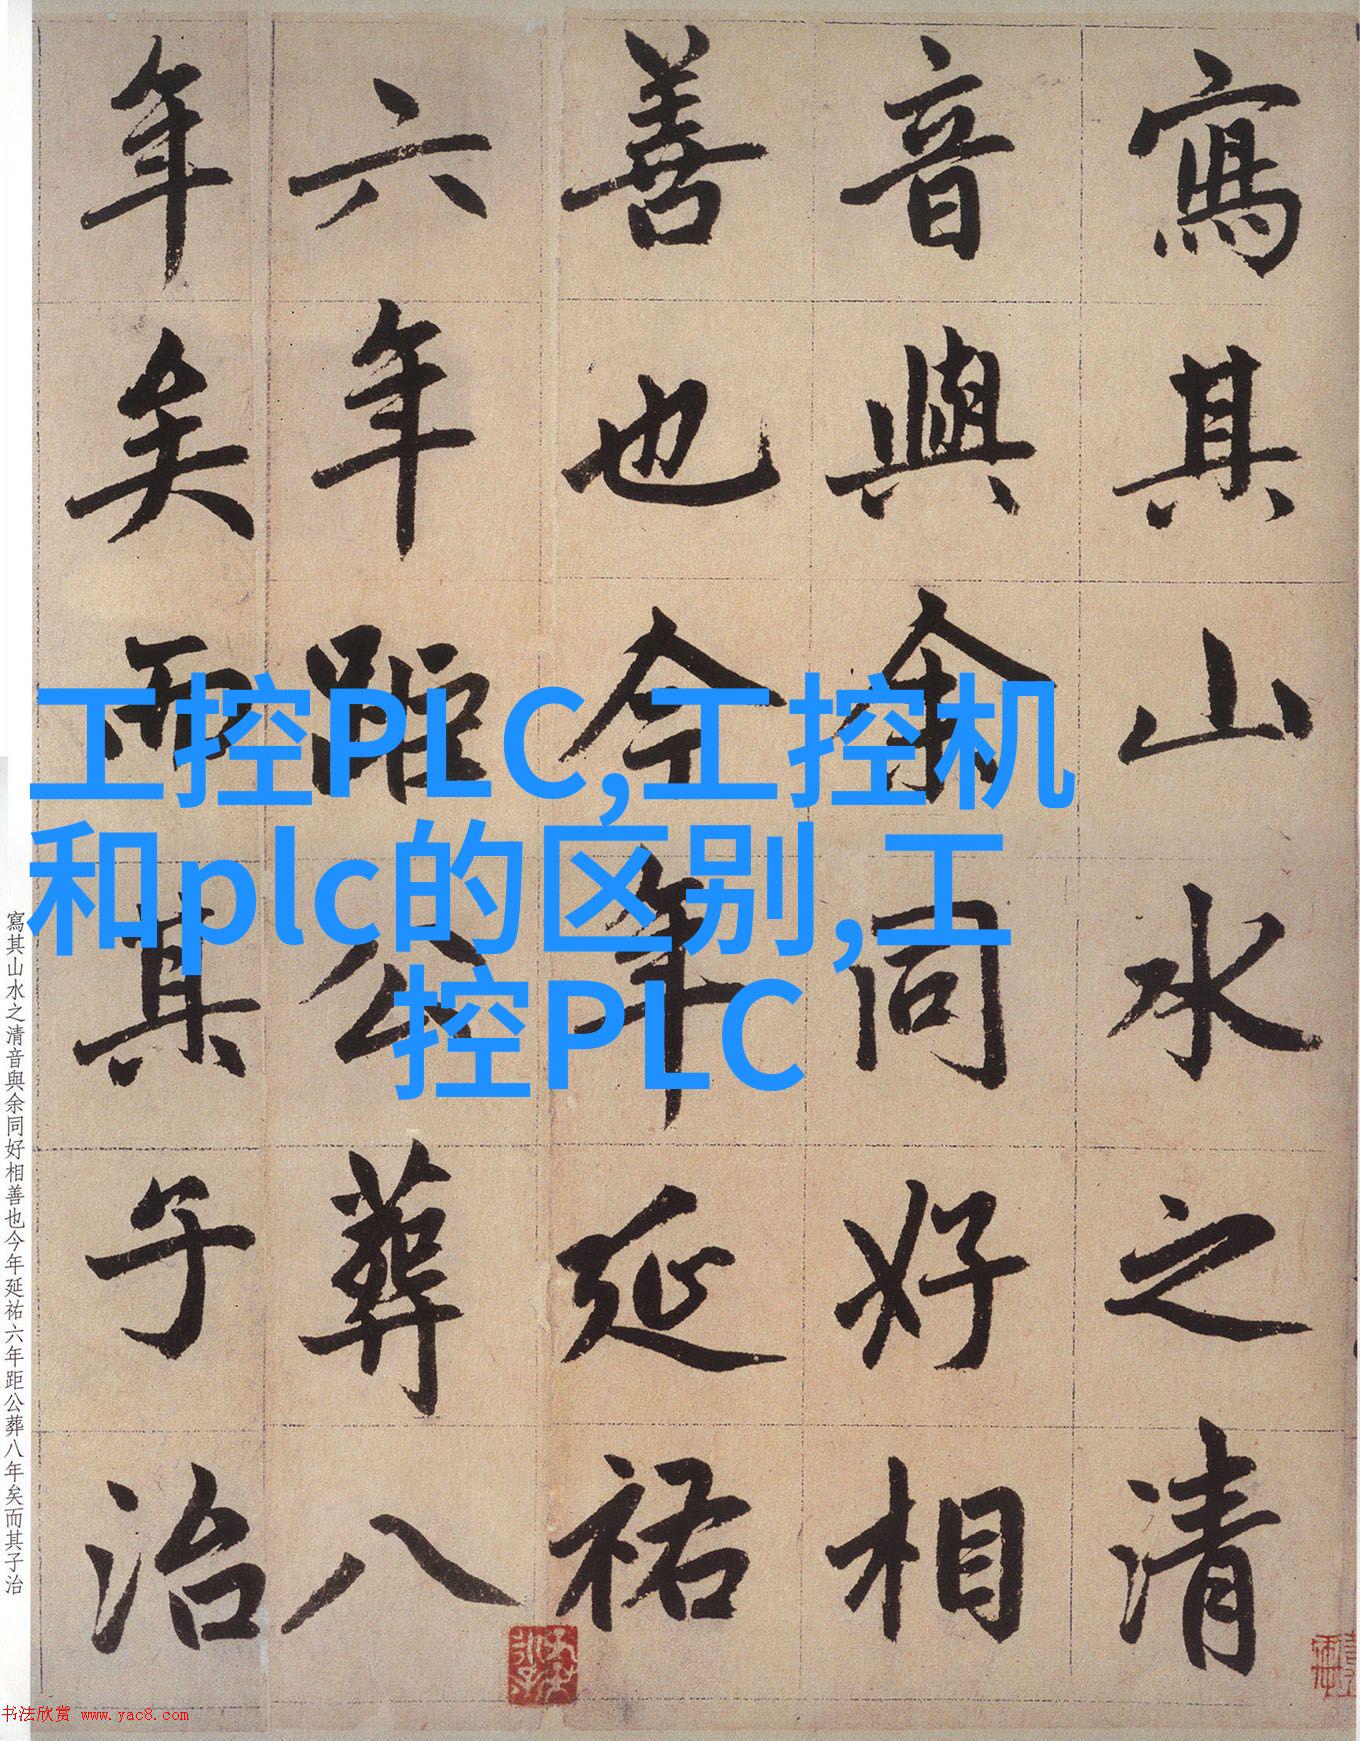 寫其山水之清
音與余同好相
善也今年延祐
六年距公葬八
年矣而其子治
工控PLC,工控机
和plc的区别,工
控PLC
寫其山水之清音與余同好相善也今年延祐六年距公葬八年矣而其子治
书法欣赏 www.yac8.com